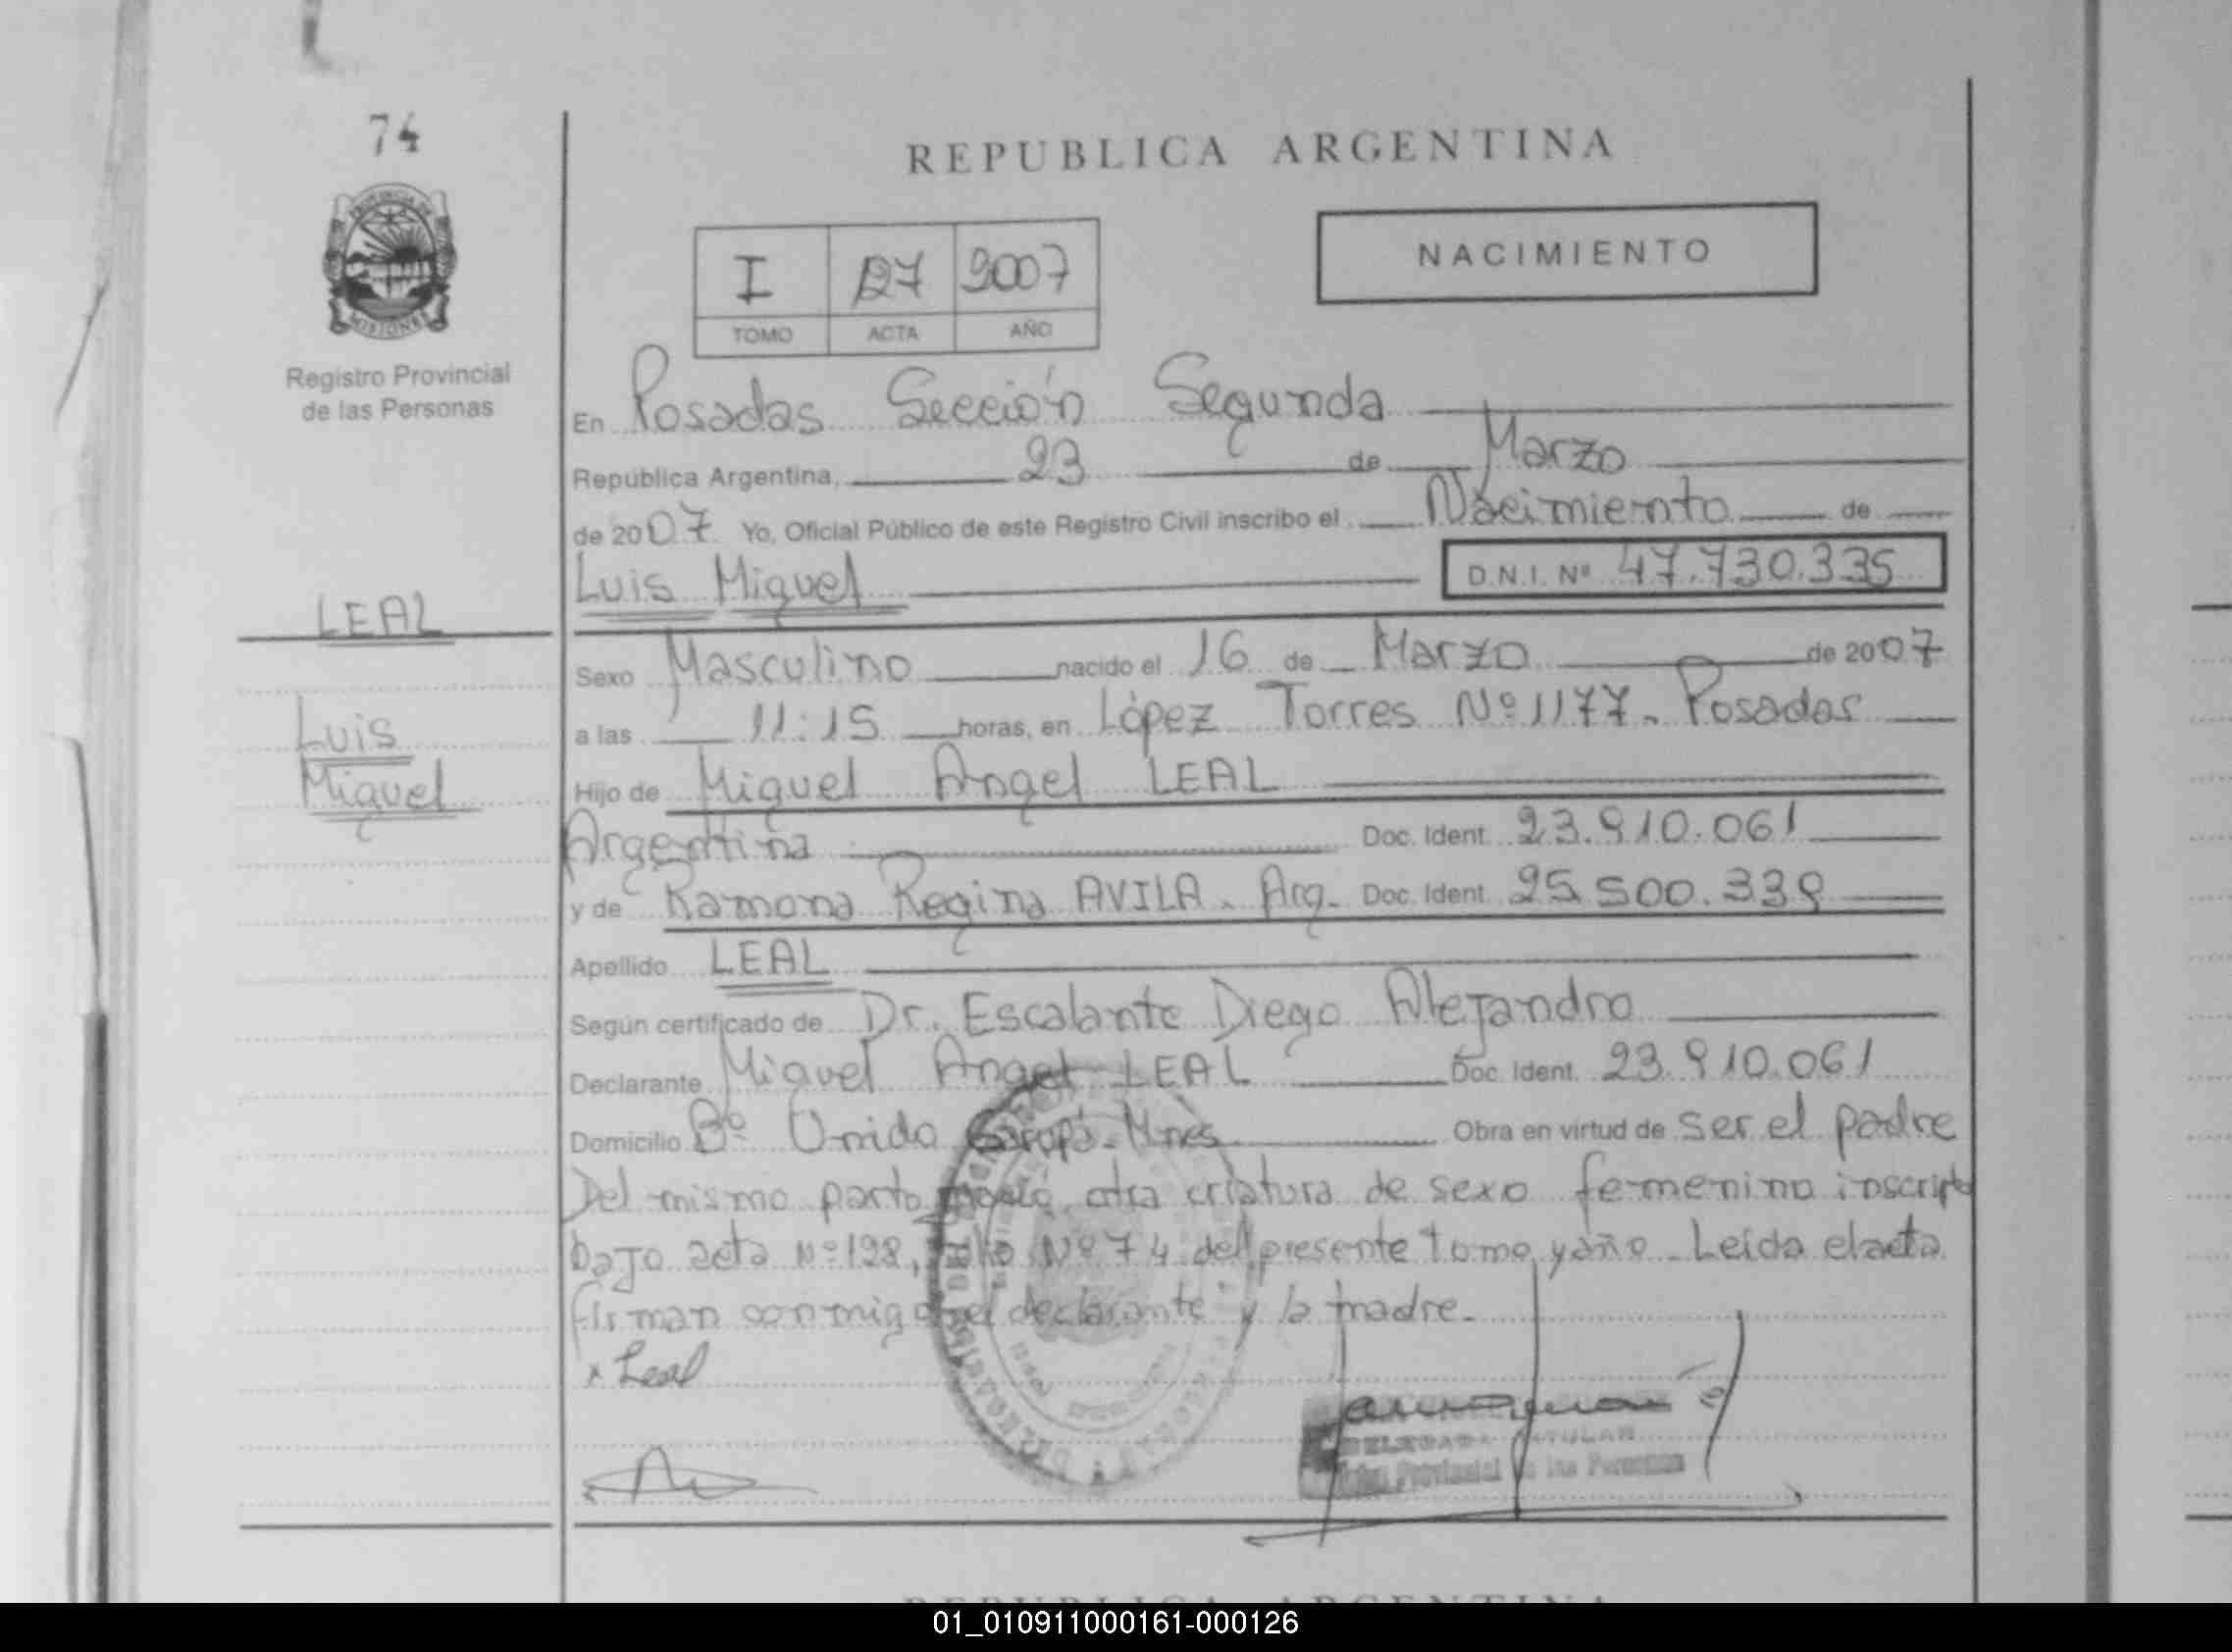 74
REPUBLICA ARGENTINA
NACIMIENTO
I 127 2007
TOMO ACTA AÑO
PROVINCIA DE
MISIONES
Registro Provincial
de las Personas
En Posadas Sección Segunda
República Argentina, 23 de Marzo
de 2007 Yo, Oficial Público de este Registro Civil inscribo el Nacimiento de
Luis Miguel D.N.I. Nº 47.730.335
LEAL
Sexo Masculino nacido el 16 de Marzo de 2007
Luis
a las 11:15 horas, en López Torres Nº 1177. Posadas
Miguel
Hijo de Miguel Angel LEAL
Argentina Doc. Ident. 23.910.061
y de Ramona Regina AVILA. Arg. Doc. Ident. 25.500.339
Apellido LEAL
Según certificado de Dr. Escalante Diego Alejandro
Declarante Miguel Angel LEAL Doc. Ident. 23.910.061
Domicilio Bº Unido Garupá-Mnes Obra en virtud de ser el padre
Del mismo parto nació otra criatura de sexo femenino inscripta
bajo acta Nº 128, folio Nº 74 del presente tomo y año. Leída el acta
firman conmigo el declarante y la madre.
x Leal
DELEGADA TITULAR
Provincial de las Personas
REPUBLICA ARGENTINA
01_010911000161-000126